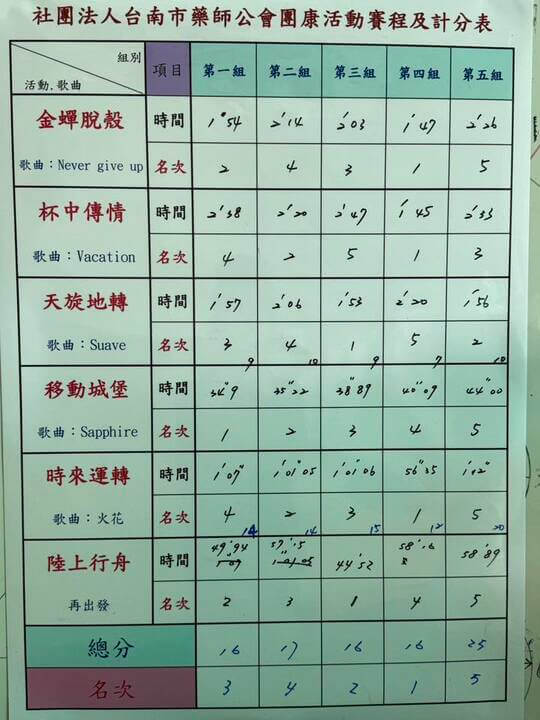 社團法人台南市藥師公會團康活動賽程及計分表
組別 項目 第一組 第二組 第三組 第四組 第五組
活動.歌曲
金蟬脫殼 時間 1'54 2'14 2'03 1'47 2'26
歌曲：Never give up 名次 2 4 3 1 5
杯中傳情 時間 2'38 2'20 2'47 1'45 2'33
歌曲：Vacation 名次 4 2 5 1 3
天旋地轉 時間 1'57 2'06 1'53 2'20 1'56
歌曲：Suave 名次 3 4 1 5 2
9 10 9 7 10
移動城堡 時間 34"9 35"22 38"89 40"09 44"00
歌曲：Sapphire 名次 1 2 3 4 5
時來運轉 時間 1'07" 1'01"05 1'01"06 56"35
歌曲：火花 名次 4 2 3 1 5
14 14 15 12 20
陸上行舟 時間 49"94 57"15 44"52 58"16 58"89
再出發 名次 2 3 1 4 5
總分 16 17 16 16 25
名次 3 4 2 1 5